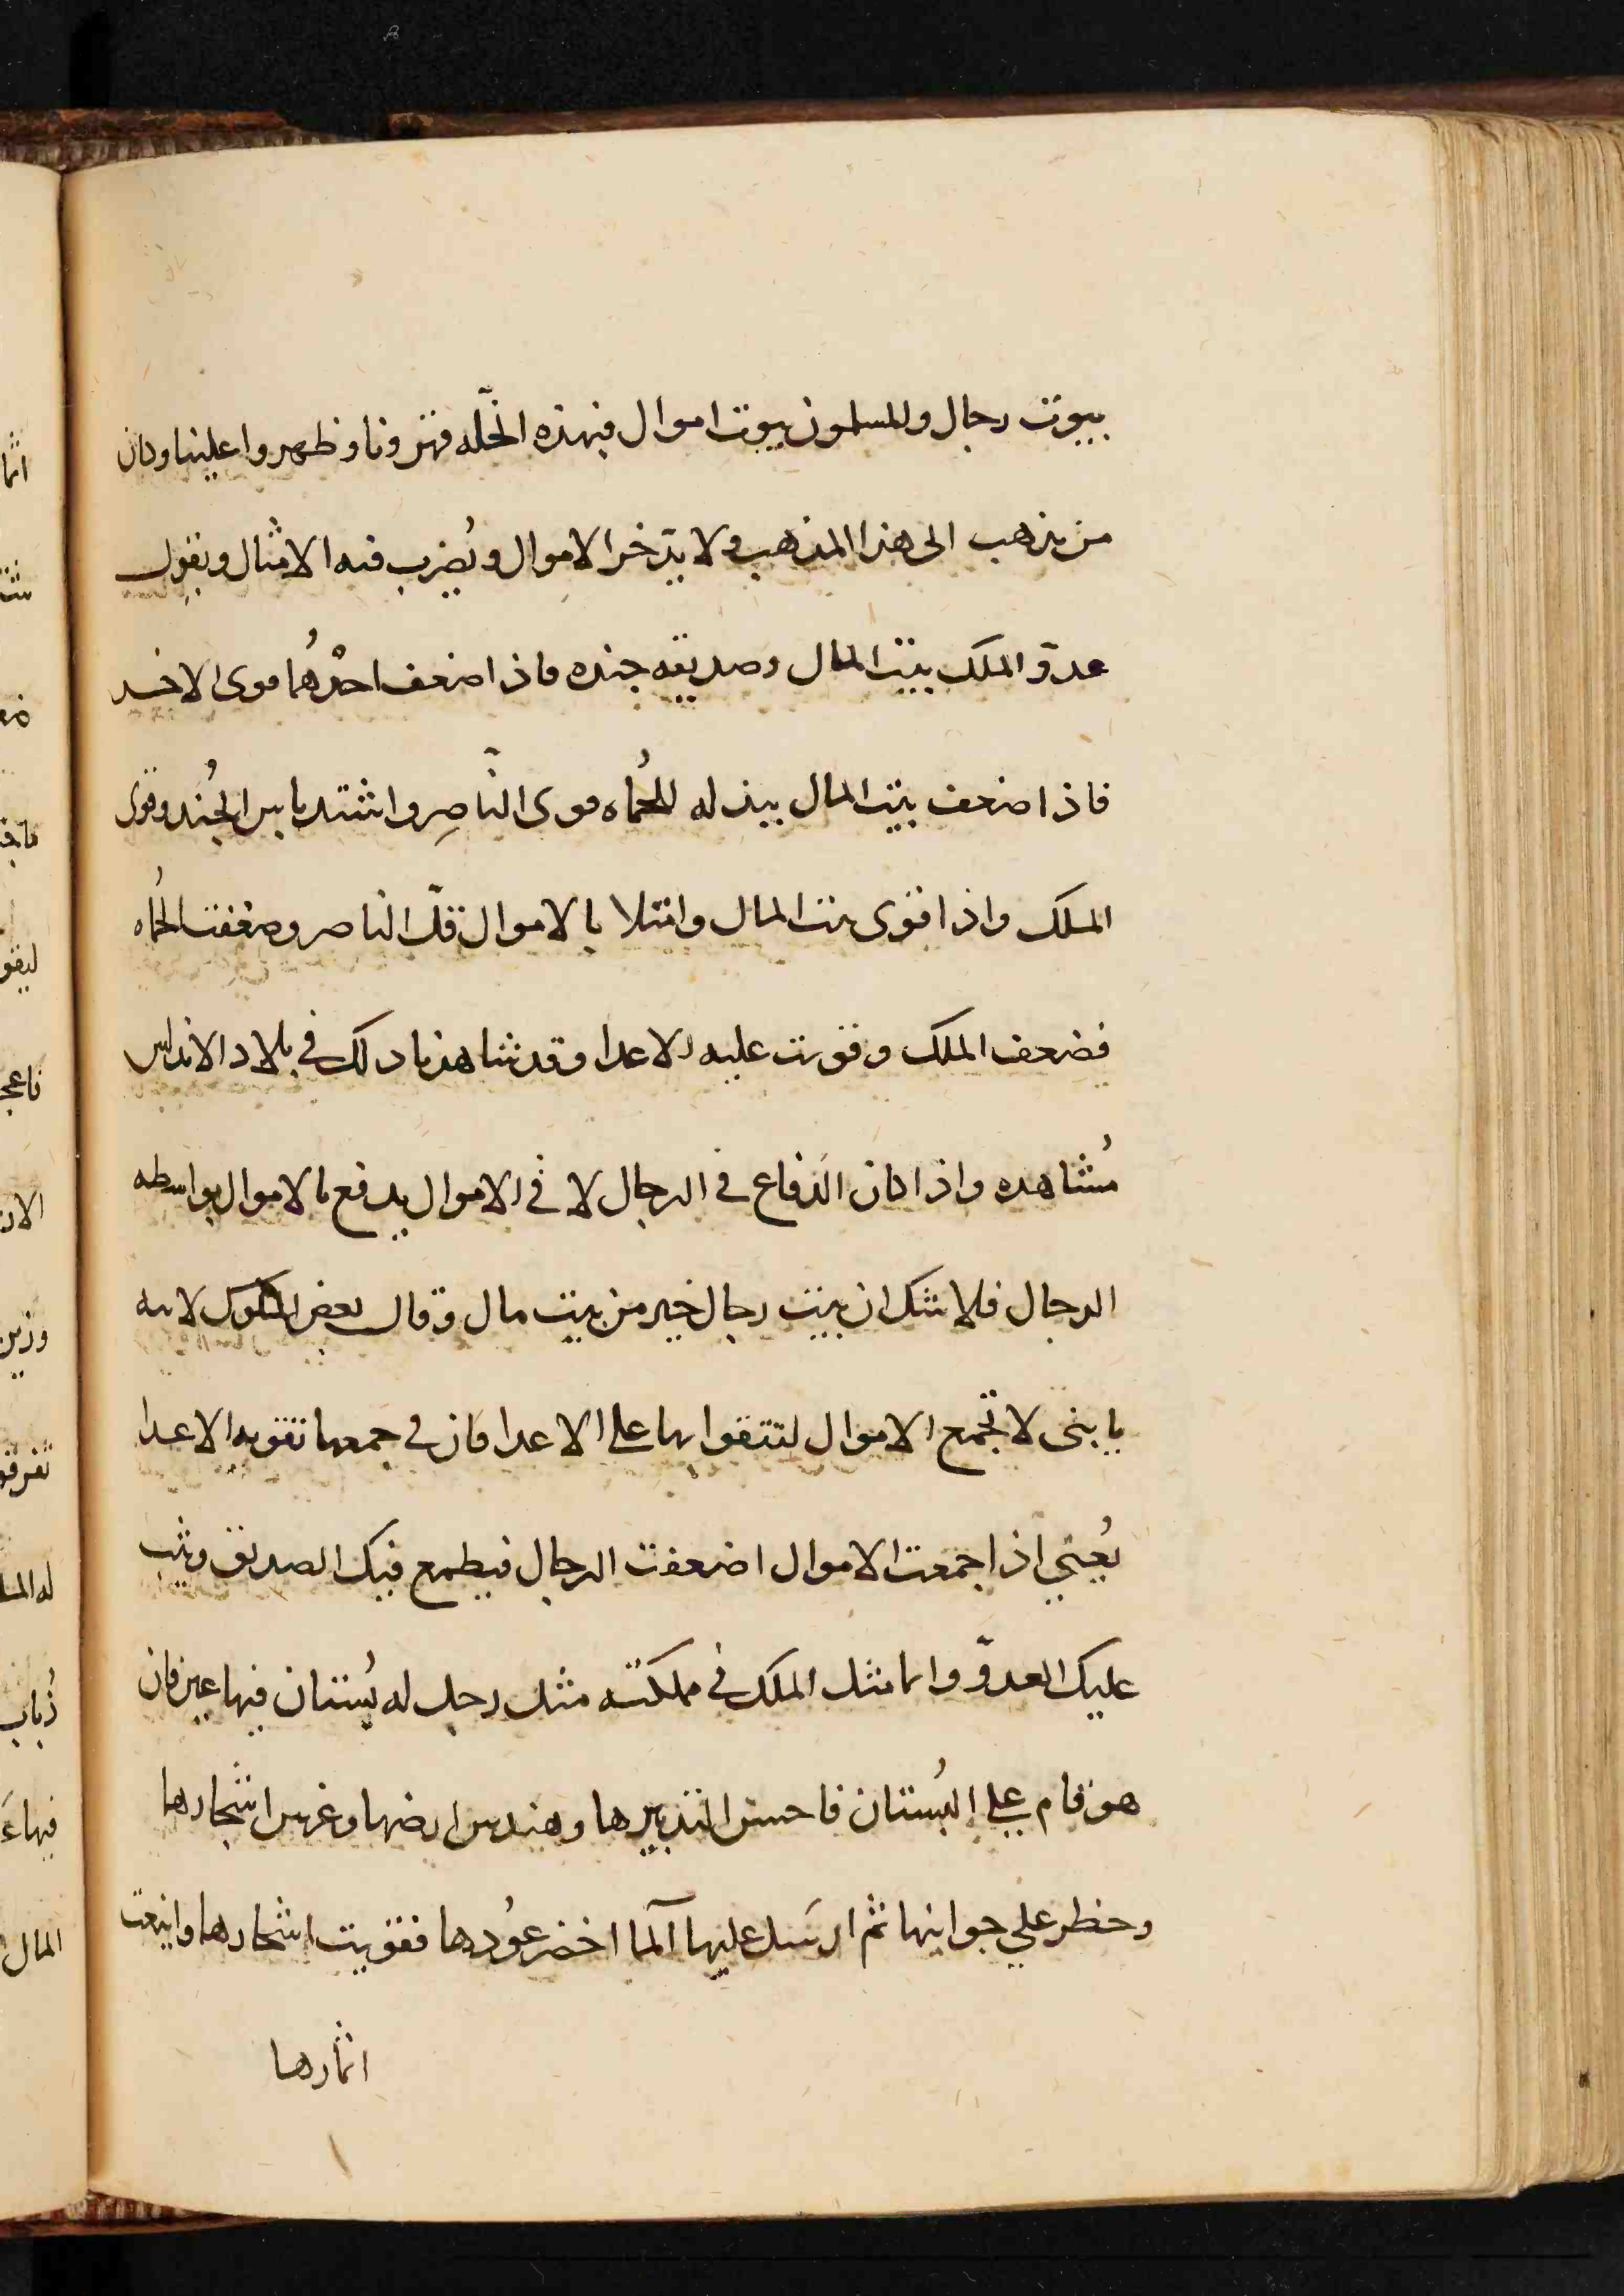 بيوت رجال وللمسلمون بيوت اموال فبهذه الخلّه قهرونا وظهروا علينا وكان
من يذهب الى هذا المذهب ولا يدّخر الاموال ويُضرب فيه الامثال ويقول
عدوّ الملك بيت المال وصديقه جنده فاذا ضعف احدُهُما قوى الاخر
فاذا ضعف بيت المال ببذله للحُماه قوى النّاصِر واشتد باس الجُند وقوى
الملك واذا قوى بيت المال وامتلا بالاموال قلّ الناصر وضعفت الحُماه
فضعف الملك وقويت عليه الاعدا وقد شاهدنا ذلك في بلاد الاندلس
مُشاهده واذا كان الدفاع في الرجال لا في الاموال يدفع بالاموال بواسطه
الرجال فلا شك ان بيت رجال خير من بيت مال وقال بعض الملوك لابنه
يا بنى لا تجمع الاموال لتتقوا بها على الاعدا فان في جمعها تقويه الاعدا
يُعني اذا جمعت الاموال اضعفت الرجال فيطمع فيك الصديق ويثب
عليك العدوّ وانما مثل الملك في مملكته مثل رجل له بُستان فيها عين فان
هو قام على البُستان فاحسن التدبيرها وهندس ارضها وغرس اشجارها
وحظر على جوانبها ثم ارسَل عليها آلما اخضر عوُدها فقويت اشجارها واينعت
اثمارها